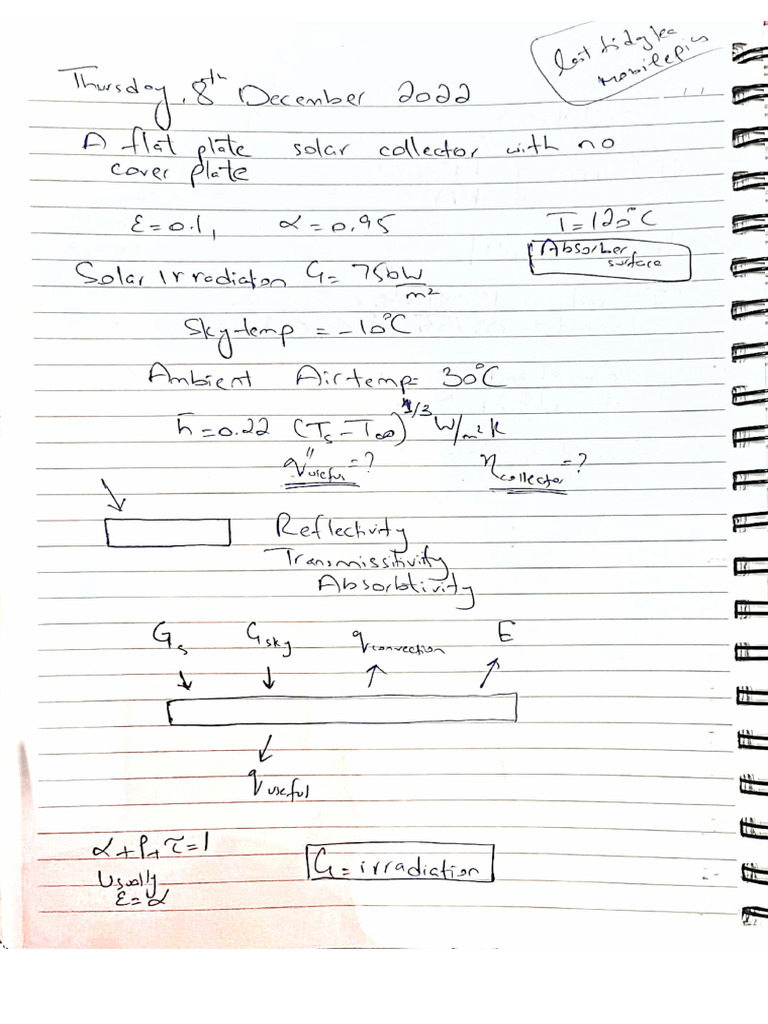 last
Thursday, 8th December 2022
A flat plate solar collector with no
cover plate
ε=0.1, α=0.95 T=120°C
Absorber
surface
Solar Irradiation G=750W/m²
Sky temp = -10°C
Ambient Air temp= 30°C
h̄=0.22 (Ts-T∞)^1/3 W/m²K
q''useful=? ηcollector=?
Reflectivity
Transmissitivity
Absorbtivity
Gs Gsky qconvection E
quseful
α+ρ+τ=1
Usually
ε=α
G=irradiation